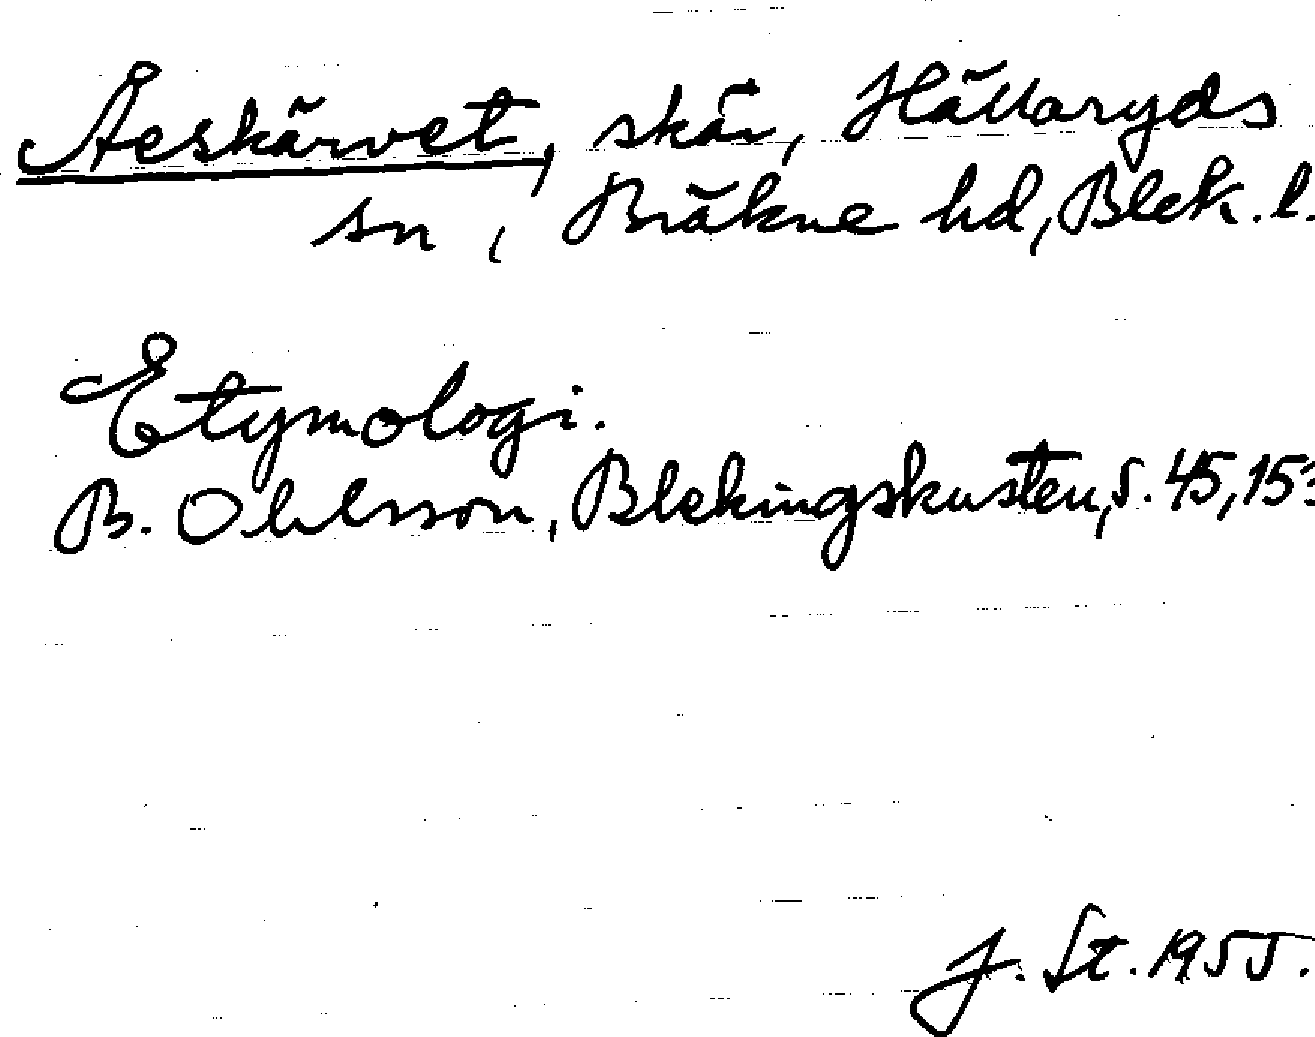 Åeskärvet, skär, Hällaryds
sn, Bräkne hd, Blek. l.
Etymologi.
B. Ohlsson, Blekingskusten, s. 45, 15
J. St. 1955.